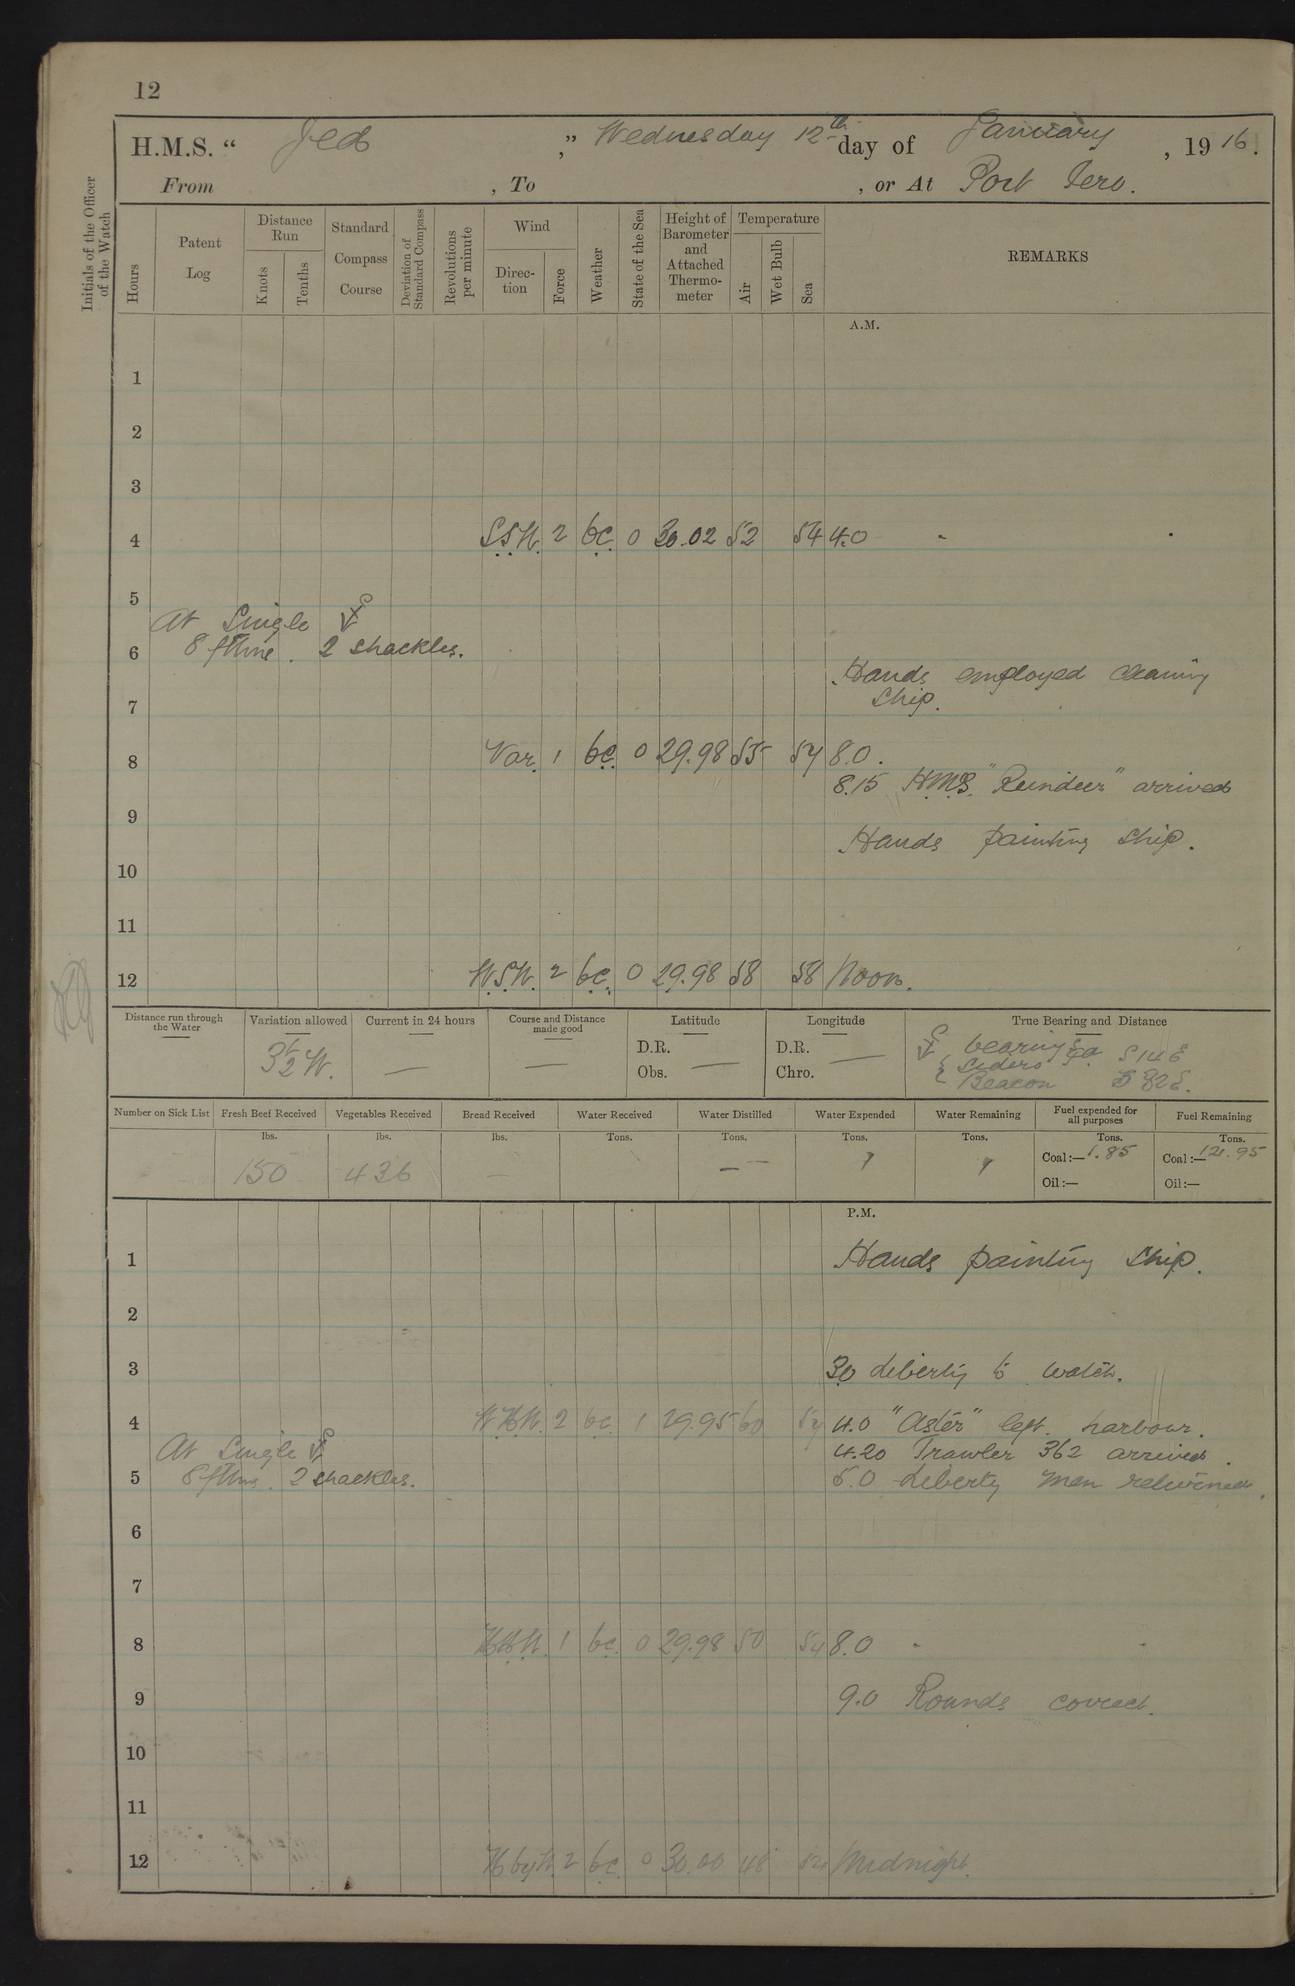 12
H.M.S. “ Jed ,” Wednesday 12th day of January , 19 16.
From , To , or At Port Iero.
Initials of the Officer of the Watch
Hours
Patent Log
Distance Run
Knots
Tenths
Standard Compass Course
Deviation of Standard Compass
Revolutions per minute
Wind
Direction
Force
Weather
State of the Sea
Height of Barometer and Attached Thermometer
Temperature
Air
Wet Bulb
Sea
REMARKS
A.M.
1
2
3
4 S.S.W. 2 bc. 0 30.02 52 54 4.0
5
At Single
6 8 fthms. 2 shackles.
Hands employed cleaning
7 ship.
8 Var. 1 bc. 0 29.98 55 54 8.0.
8.15 H.M.S. "Reindeer" arrived
9
Hands painting ship.
10
11
12 W.S.W. 2 bc. 0 29.98 58 58 Noon.
Distance run through the Water
Variation allowed
Current in 24 hours
Course and Distance made good
Latitude
Longitude
True Bearing and Distance
3½ W. — —
D.R.
Obs. —
D.R.
Chro. —
bearings
S 14 E
Beacon
Number on Sick List
Fresh Beef Received
Vegetables Received
Bread Received
Water Received
Water Distilled
Water Expended
Water Remaining
Fuel expended for all purposes
Fuel Remaining
lbs. lbs. lbs. Tons. Tons. Tons. Tons. Tons. Tons.
150 436 —
Coal :— 1.85 Coal :— 121.95
Oil :— Oil :—
P.M.
1 Hands painting ship.
2
3 3.0 Liberty to watch.
4 2 bc. 1 29.95 60 54 4.0 "Aster" left harbour.
At Single 4.20 Trawler 362 arrived.
5 8 fthms. 2 shackles. 5.0 Liberty men returned.
6
7
8 1 bc. 0 29.98 50 54 8.0
9 9.0 Rounds correct.
10
11
12 N by W. 2 bc. 0 30.00 48 54 Midnight.